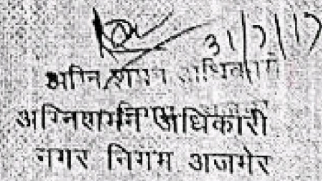 31/7/17
अग्नि शमन अधिकारी
अग्निशमन अधिकारी
नगर निगम अजमेर